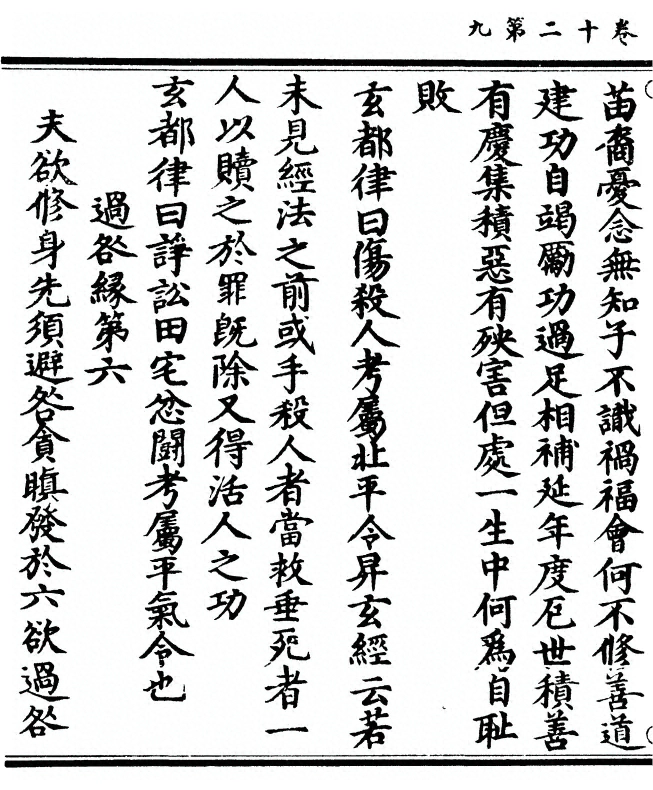 卷十二第九
苗裔憂念無知子不識禍福會何不修善道
建功自竭勵功過足相補延年度厄世積善
有慶集積惡有殃害但處一生中何爲自恥
敗
玄都律曰傷殺人考屬北平令昇玄經云若
未見經法之前或手殺人者當救垂死者一
人以贖之於罪旣除又得活人之功
玄都律曰諍訟田宅忿鬪考屬平氣令也
過咎緣第六
夫欲修身先須避咎貪瞋發於六欲過咎